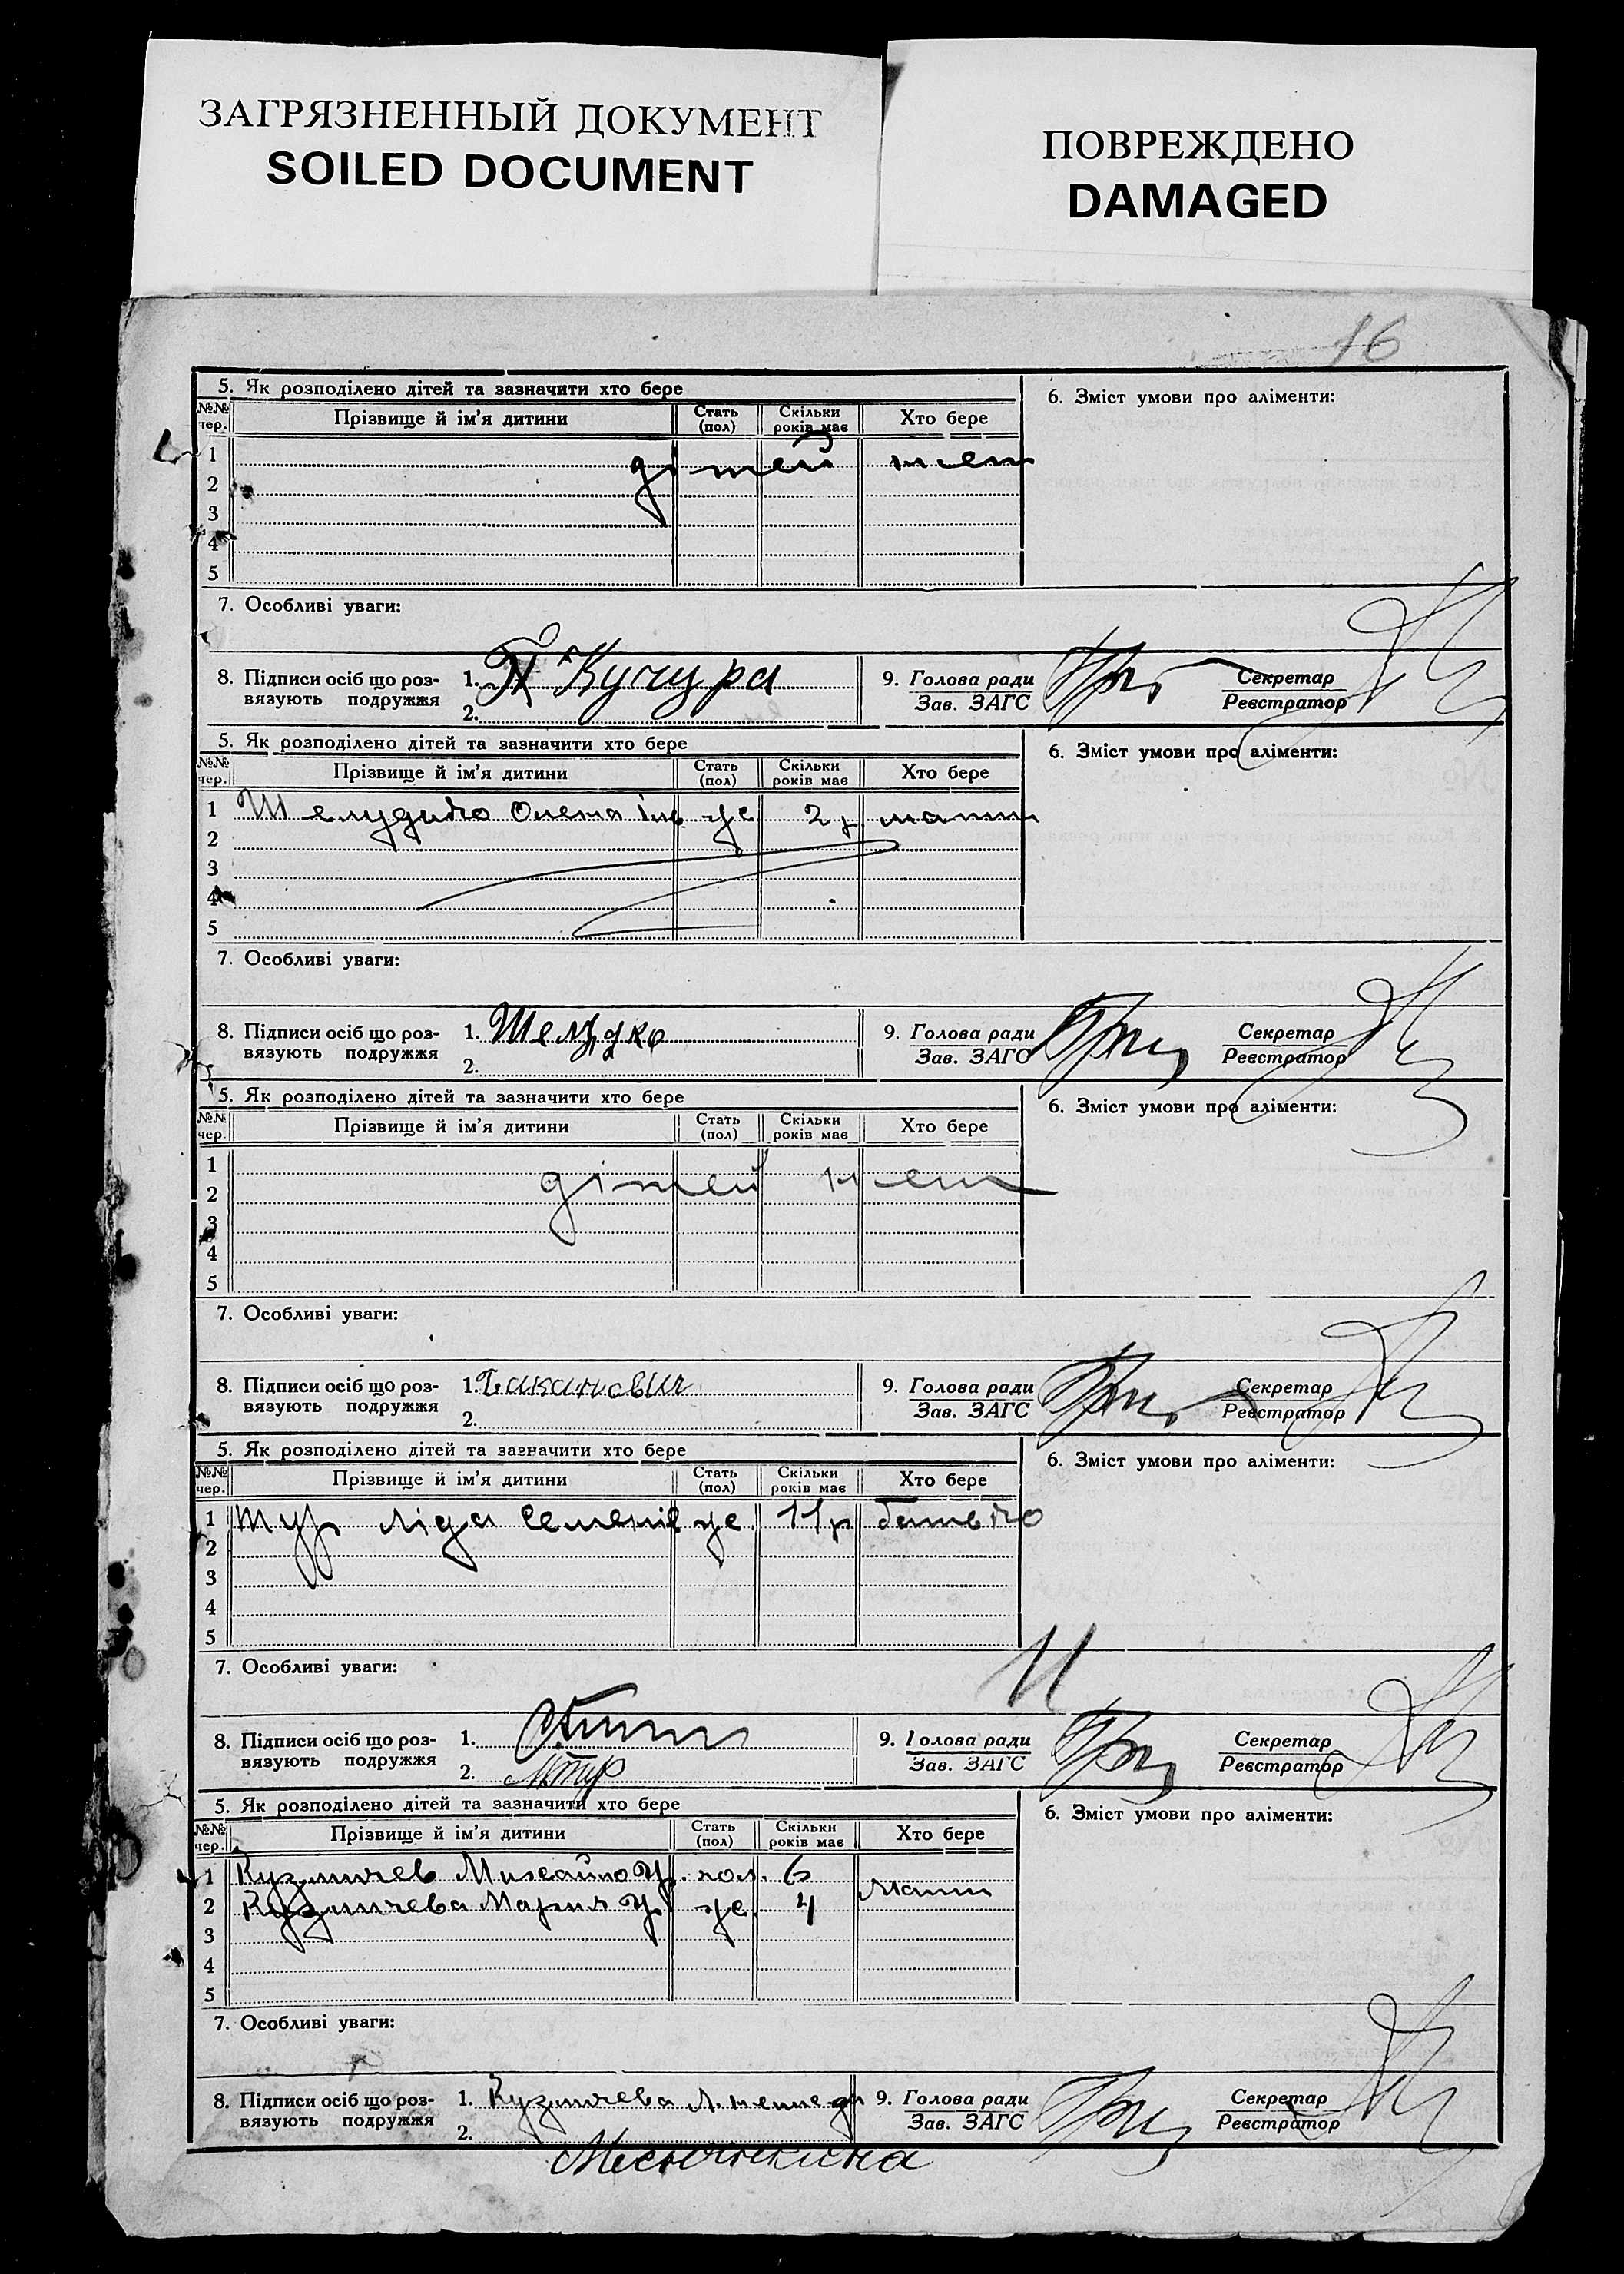 ЗАГРЯЗНЕННЫЙ ДОКУМЕНТ
SOILED DOCUMENT
ПОВРЕЖДЕНО
DAMAGED
16
5. Як розподілено дітей та зазначити хто бере
6. Зміст умови про аліменти:
№№ чер. Прізвище й ім'я дитини Стать (пол) Скільки років має Хто бере
1 дітей
2
3
4
5
7. Особливі уваги:
8. Підписи осіб що роз- 1. П Кучура 9. Голова ради Секретар
вязують подружжя 2. Зав. ЗАГС Реєстратор
5. Як розподілено дітей та зазначити хто бере
6. Зміст умови про аліменти:
№№ чер. Прізвище й ім'я дитини Стать (пол) Скільки років має Хто бере
1 Шелудько Олена Ів. ж 2 р. мати
2
3
4
5
7. Особливі уваги:
8. Підписи осіб що роз- 1. Шелудко 9. Голова ради Секретар
вязують подружжя 2. Зав. ЗАГС Реєстратор
5. Як розподілено дітей та зазначити хто бере
6. Зміст умови про аліменти:
№№ чер. Прізвище й ім'я дитини Стать (пол) Скільки років має Хто бере
1
2 дітей нет
3
4
5
7. Особливі уваги:
8. Підписи осіб що роз- 1. 9. Голова ради Секретар
вязують подружжя 2. Зав. ЗАГС Реєстратор
5. Як розподілено дітей та зазначити хто бере
6. Зміст умови про аліменти:
№№ чер. Прізвище й ім'я дитини Стать (пол) Скільки років має Хто бере
1 Тур Ліда Семенів ж. 11 р батько
2
3
4
5
7. Особливі уваги: 11
8. Підписи осіб що роз- 1. 9. Голова ради Секретар
вязують подружжя 2. М Тур Зав. ЗАГС Реєстратор
5. Як розподілено дітей та зазначити хто бере
6. Зміст умови про аліменти:
№№ чер. Прізвище й ім'я дитини Стать (пол) Скільки років має Хто бере
1 Кузмичев Михайло чол. 6 мати
2 Кузмичева Мария ж. 4
3
4
5
7. Особливі уваги:
8. Підписи осіб що роз- 1. Кузмичева 9. Голова ради Секретар
вязують подружжя 2. Зав. ЗАГС Реєстратор